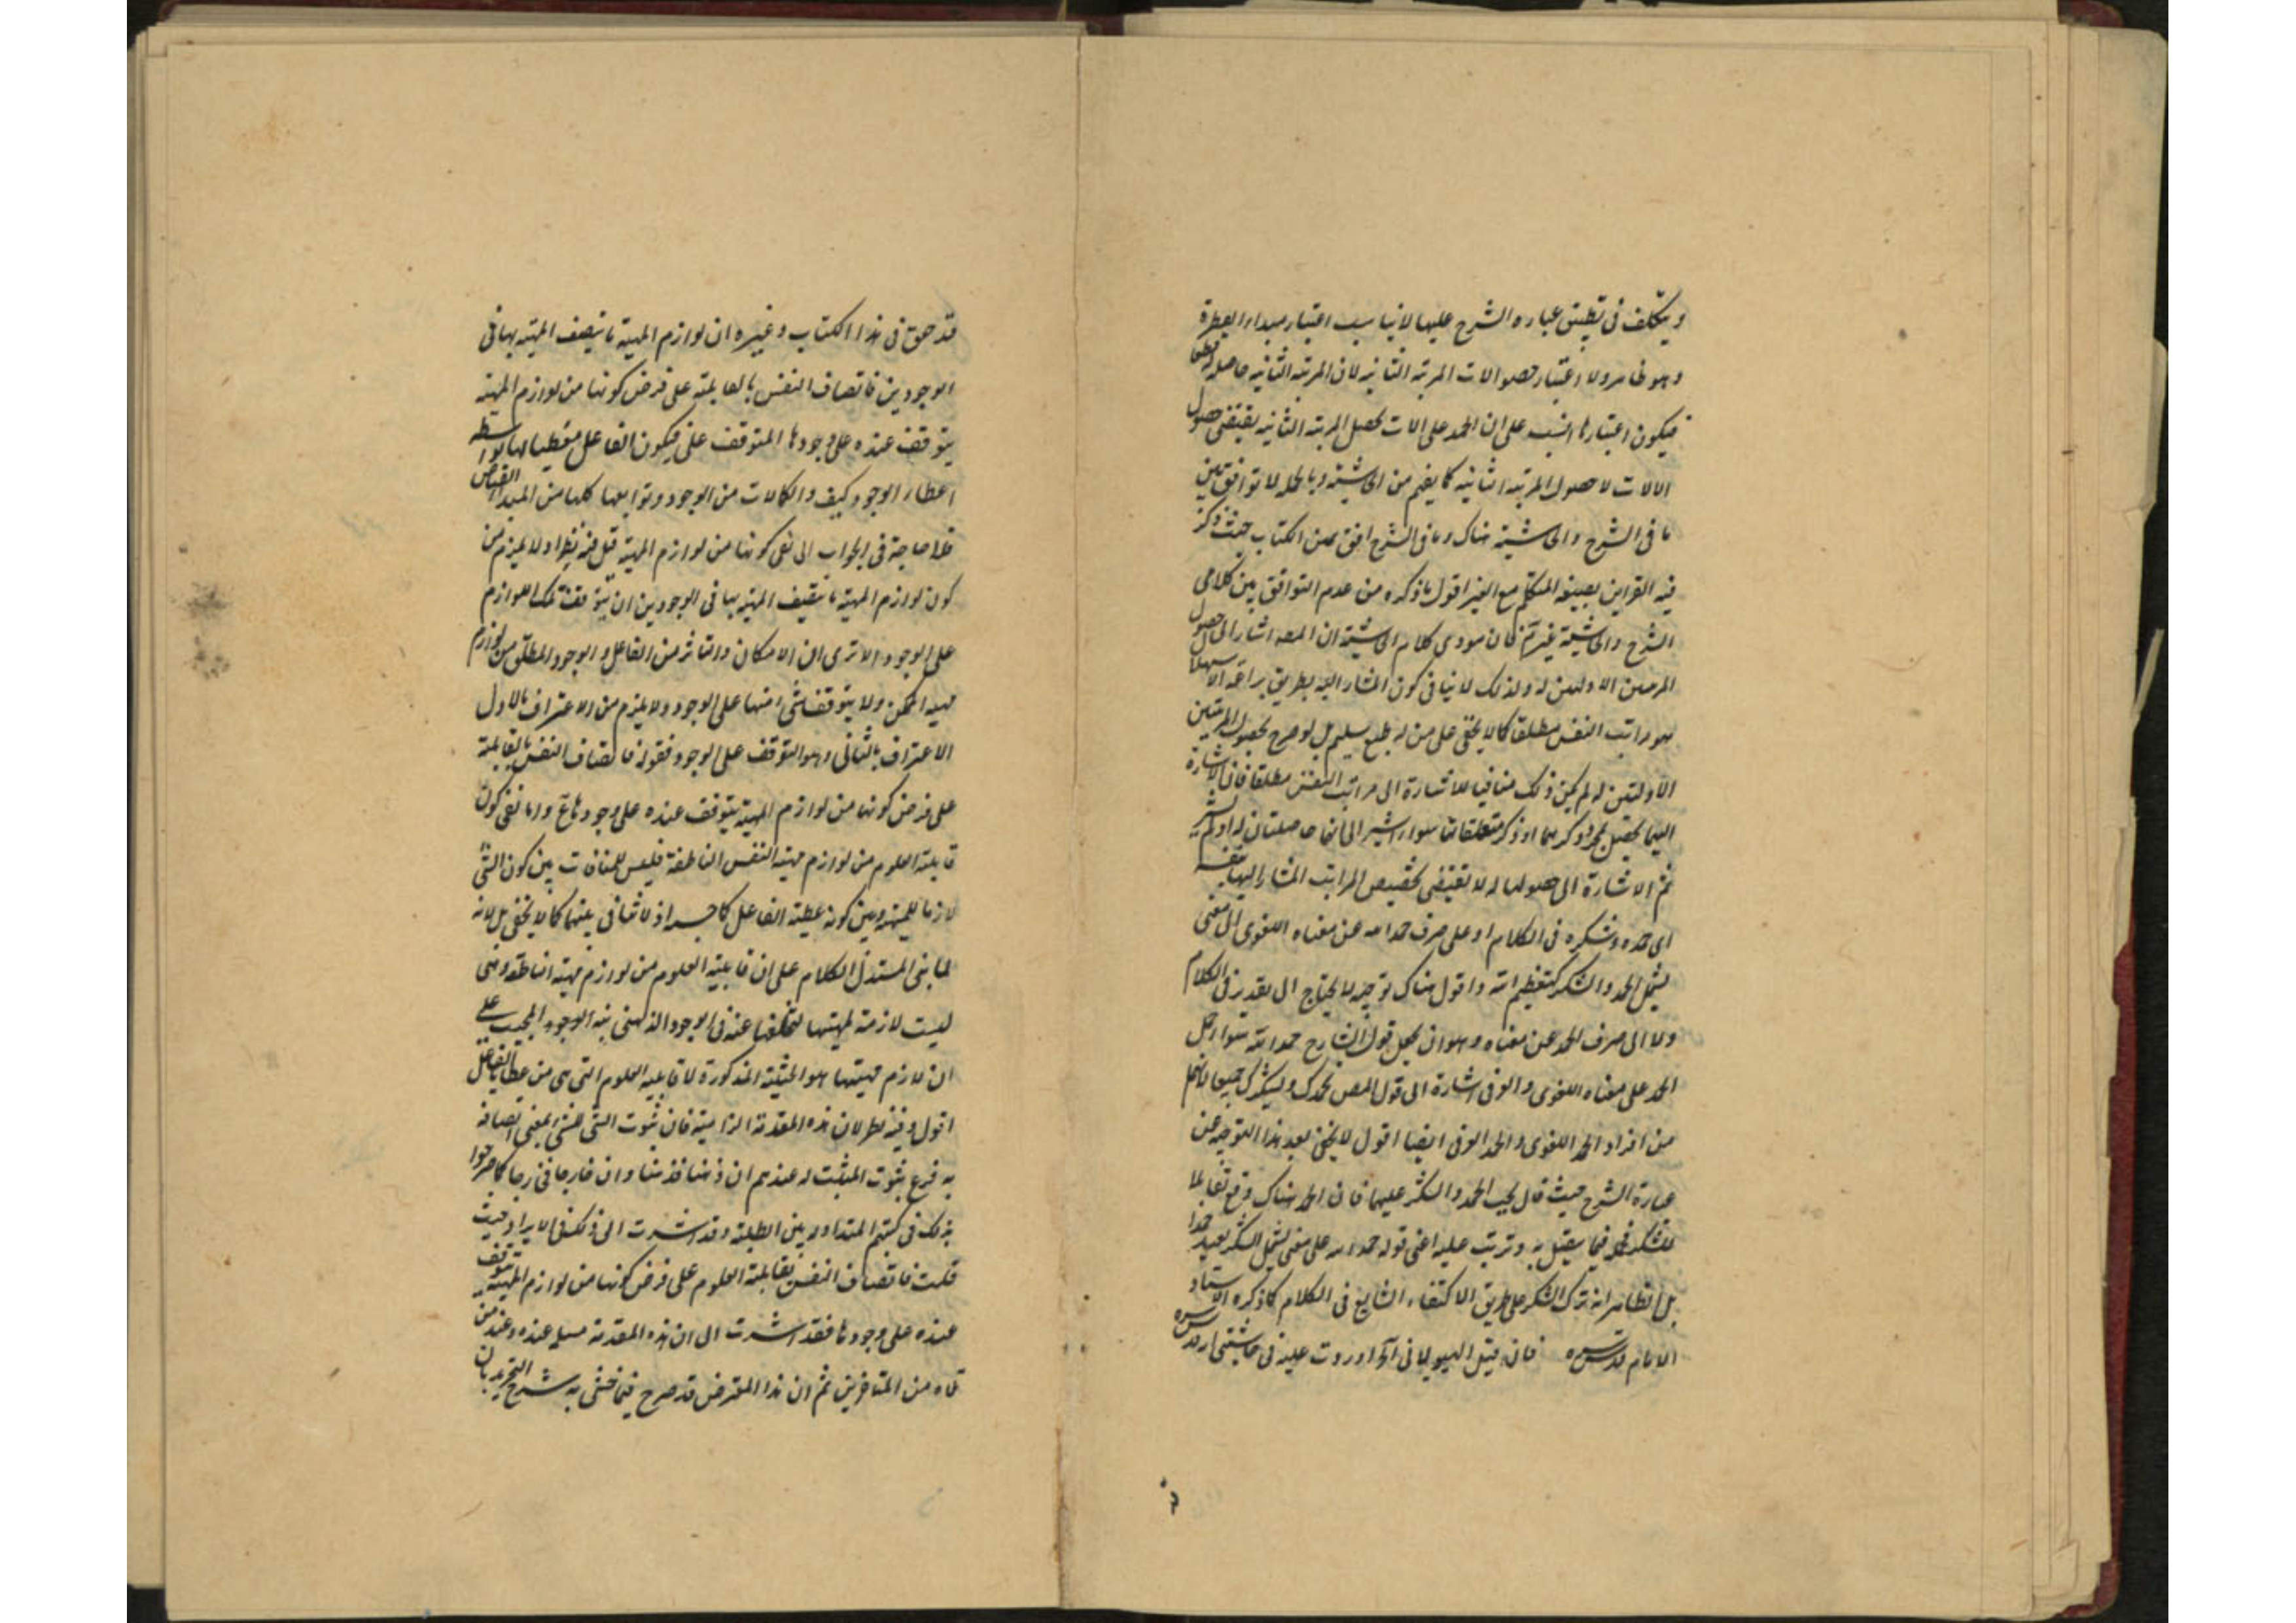 ويتكلف في تطبيق عباره الشرح عليها لا يناسب اعتبار مبداء الفطرة
وهو ظاهر ولا اعتبار حصول الات المرتبه الثانيه لان المرتبه الثانيه حاصله قطعا
فيكون اعتبارها انسب على ان الحمد على الات تحصل المرتبه الثانيه يقتضى حصول
الالات لا حصول المرتبه الثانيه كما يفهم من الحاشيته وبالجمله لا توافق بين
ما فى الشرح والحاشيته هناك وما فى الشرح اوفق بمتن الكتاب حيث ذكر
فيه القراين بصيغه المتكلم مع الغير اقول ما ذكره من عدم التوافق بين كلامى
الشرح والحاشيته غير تم فان مودى كلام الحاشيته ان المصه اشار الى حصول
المرتبتين الاوليين له وذلك لا ينافى كون المشار اليه بطريق براعة الاستهلال
هو مراتب النفس مطلقا كما لا يخفى على من له طبع سليم بل لو صرح بحصول المرتبتين
الاوليتين له لم يكن ذلك منافيا للاشارة الى مراتب النفس مطلقا فان الاشارة
اليها يحصل بمجرد ذكرهما او ذكر متعلقاتها سواء اشير الى انها حاصلتان له او لم يشر
ثم الاشارة الى حصولها له لا تقتضى تخصيص المراتب المشار اليها بنفسه
اى حمده وشكره فى الكلام او على صرف حمدا له عن معناه اللغوى الى معنى
يشمل الحمد والشكر كتعظيم الله واقول هناك توجيه لا يحتاج الى تقدير فى الكلام
ولا الى صرف الحمد عن معناه وهو ان يجعل قول الشارح حمدا لله سواء حمل
الحمد على معناه اللغوى والعرفى اشارة الى قول المص نحمدك ونشكرك جميعا فانهما
من افراد الحمد اللغوى والحمد العرفى ايضا اقول لا يخفى بعد هذا التوجيه عن
عبارة الشرح حيث قال يجب الحمد والشكر عليهما فان الحمد هناك وقع مقابلا
للشكر فحمله فيما يتصل به وترتب عليه اعنى قوله حمدا له على معنى يشمل الشكر بعيد جدا
بل الظاهر انه ترك الشكر على طريق الاكتفاء الشايع فى الكلام كما ذكره الاستاد
الامام قدس سره فان قيل الهيولانى آه اوردت عليه فى حاشيتى
قد حقق فى هذا الكتاب وغيره ان لوازم المهية ما يتصف المهية بها فى
الوجودين فاتصاف النفس بالقابلية على فرض كونها من لوازم المهية
يتوقف عنده على وجودها المتوقف على فيكون الفاعل معطيا لها بواسطه
اعطاء الوجود كيف والكمالات من الوجود وتوابعها كلها من المبدا الفياض
فلا حاجة فى الجواب الى نفى كونها من لوازم المهية قيل فيه نظر اذ لا يلزم من
كون لوازم المهية ما يتصف المهية بها فى الوجودين ان يتوقف تلك اللوازم
على الوجود الا ترى ان الامكان والتاثر من الفاعل والوجود المطلق من لوازم
مهية الممكن ولا يتوقف شئ منها على الوجود ولا يلزم من الاعتراف بالاول
الاعتراف بالثانى وهو التوقف على الوجود فقوله فاتصاف النفس بالقابلية
على فرض كونها من لوازم المهية يتوقف عنده على وجودها مم واما نفى كون
قابلية العلوم من لوازم مهية النفس الناطقة فليس للمنافات بين كون الشئ
لازما للمهية وبين كونه عطية الفاعل كما حسب اذ لا تنافى بينهما كما لا يخفى بل لانه
لما بنى المستدل الكلام على ان قابلية العلوم من لوازم مهية الناطقة وهى
ليست لازمة لمهيتها لتخلفها عنه فى الوجود الذهنى نبه المجيب على
ان لازم مهيتها هو الحيثية المذكورة لا قابلية العلوم التى هى من عطاء الفاعل
اقول وفيه نظر لان هذه المقدمة الزامية فان ثبوت الشئ لشئ بمعنى اتصافه
به فرع ثبوت المثبت له عندهم ان ذهنا فذهنا وان خارجا فخارجا كما صرحوا
بذلك فى كتبهم المتداوله بين الطلبة وقد اشرت الى ذلك فى الايراد حيث
قلت فاتصاف النفس بقابلية العلوم على فرض كونها من لوازم المهية يتوقف
عنده على وجودها فقد اشرت الى ان هذه المقدمة مسلم عنده وعند من
تلاه من المتاخرين ثم ان هذا المعترض قد صرح فيما حشى به شرح التجريد بان